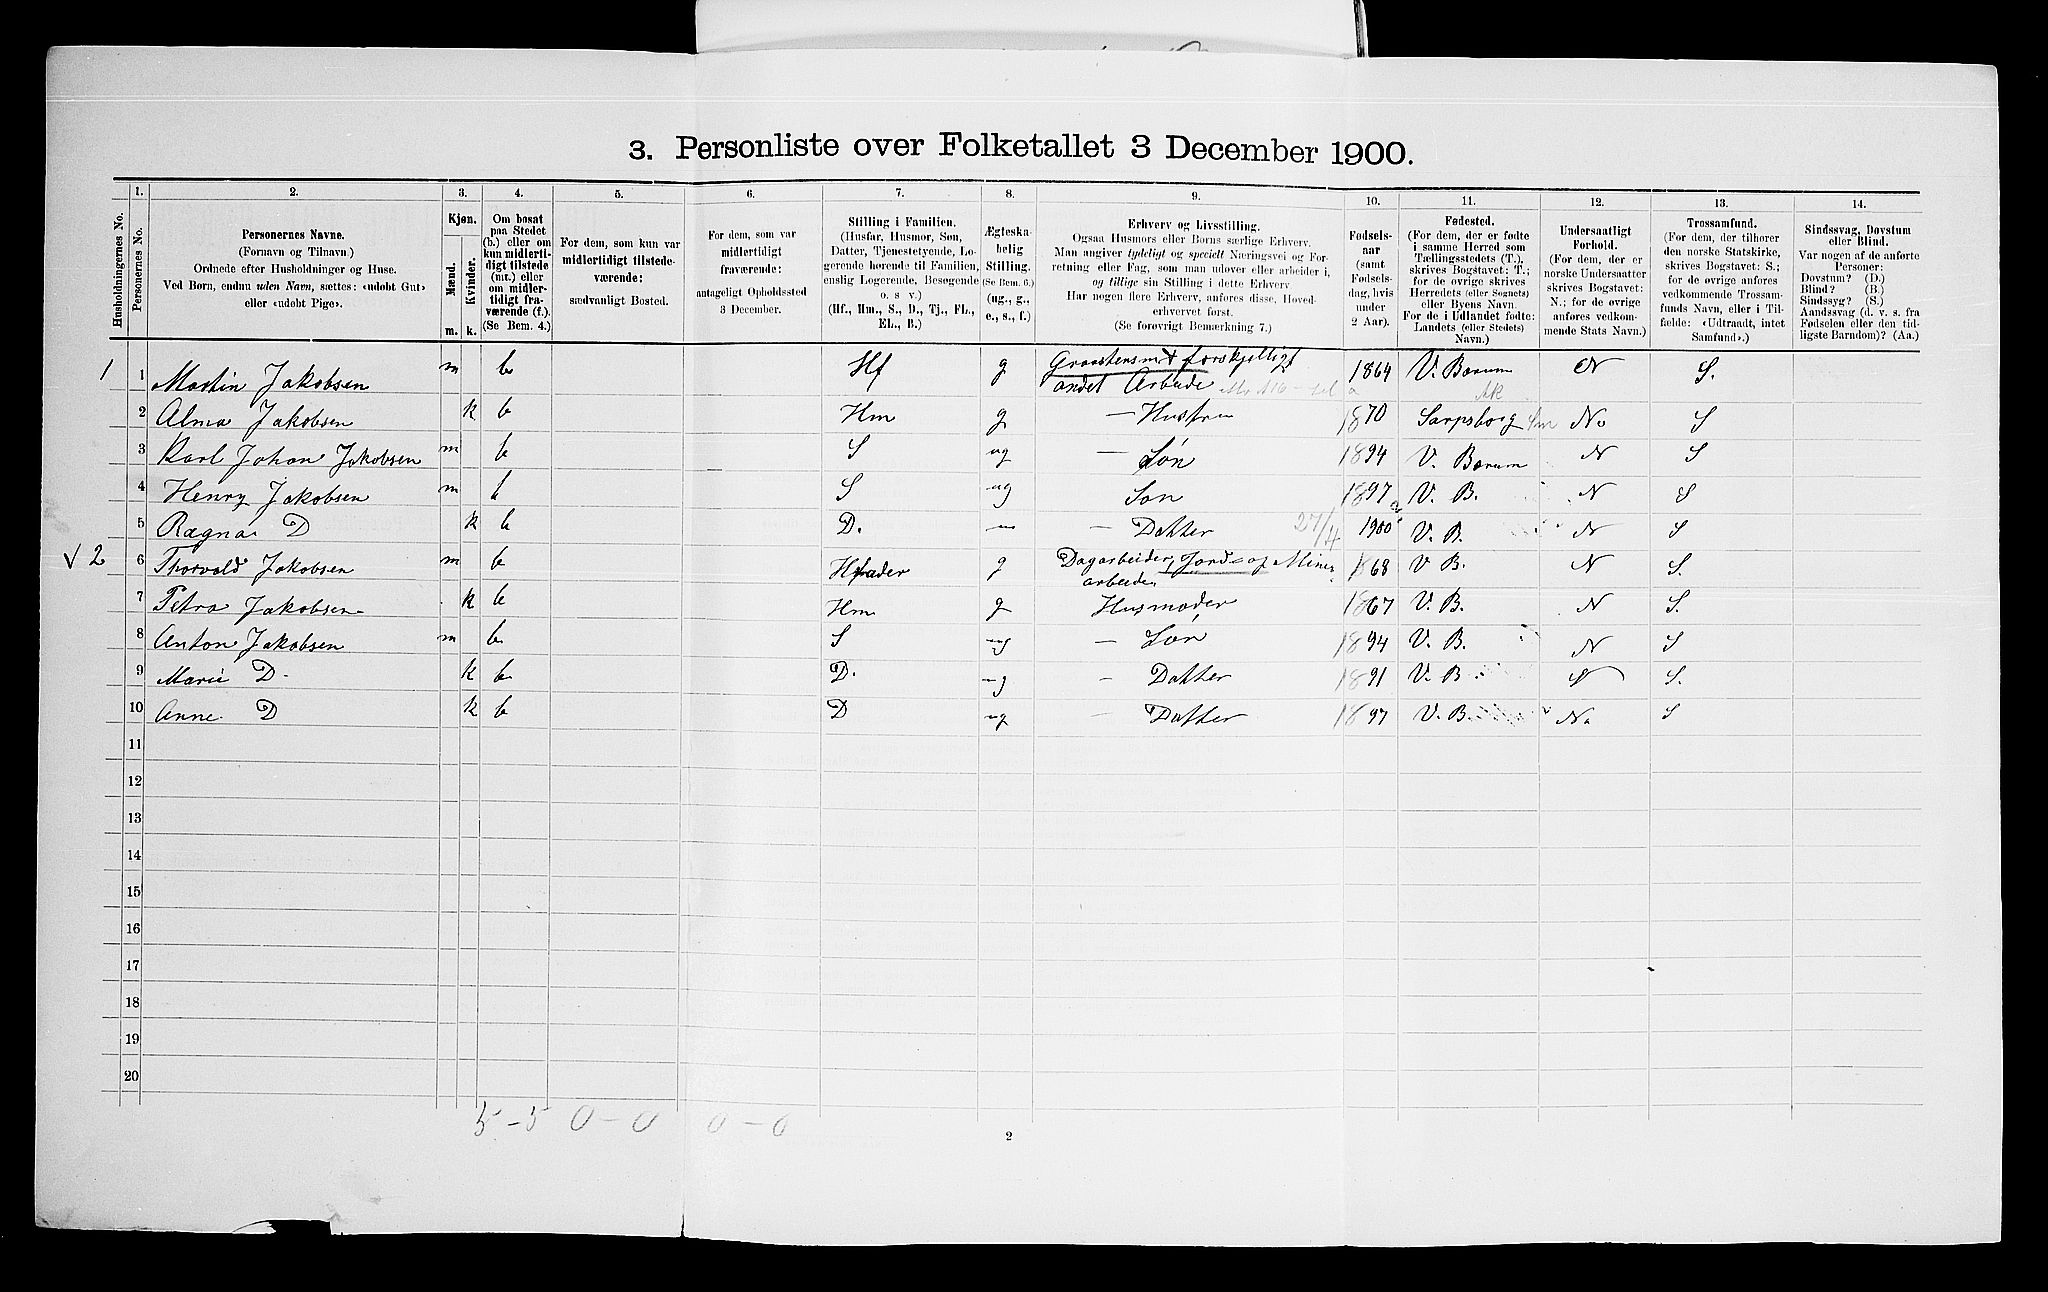 3. Personliste over Folketallet 3 December 1900.
1. 2. 3. 4. 5. 6. 7. 8. 9. 10. 11. 12. 13. 14.
Husholdningernes No.
Personernes No.
Personernes Navne.
(Fornavn og Tilnavn.)
Ordnede efter Husholdninger og Huse.
Ved Børn, endnu uden Navn, sættes: «udøbt Gut»
eller «udøbt Pige».
Kjøn.
Mænd.
Kvinder.
m. k.
Om bosat
paa Stedet
(b.) eller om
kun midlerti-
digt tilstede
(mt.) eller
om midler-
tidigt fra-
værende (f.).
(Se Bem. 4.)
For dem, som kun var
midlertidigt tilstede-
værende:
sædvanligt Bosted.
For dem, som var
midlertidigt
fraværende:
antageligt Opholdssted
3 December.
Stilling i Familien.
(Husfar, Husmor, Søn,
Datter, Tjenestetyende, Lo-
gerende hørende til Familien,
enslig Logerende, Besøgende
o. s v.)
(Hf., Hm., S., D., Tj., FL.,
EL., B.)
Ægteska-
belig
Stilling.
(Se Bem. 6.)
(ug., g.,
e., s., f.)
Erhverv og Livsstilling.
Ogsaa Husmors eller Børns særlige Erhverv.
Man angiver tydeligt og specielt Næringsvei og For-
retning eller Fag, som man udøver eller arbeider i,
og tillige sin Stilling i dette Erhverv.
Har nogen flere Erhverv, anføres disse, Hoved-
erhvervet først.
(Se forøvrigt Bemærkning 7.)
Fødsels-
aar
(samt
Fødsels-
dag, hvis
under
2 Aar).
Fødested.
(For dem, der er fødte
i samme Herred som
Tællingsstedets (T.),
skrives Bogstavet: T.;
for de øvrige skrives
Herredets (eller Sognets)
eller Byens Navn.
For de i Udlandet fødte:
Landets (eller Stedets)
Navn.)
Undersaatligt
Forhold.
(For dem, der er
norske Undersaatter
skrives Bogstavet:
N.; for de øvrige
anføres vedkom-
mende Stats Navn.)
Trossamfund.
(For dem, der tilhører
den norske Statskirke,
skrives Bogstavet: S.;
for de øvrige anføres
vedkommende Trossam-
funds Navn, eller i Til-
fælde: «Udtraadt, intet
Samfund».)
Sindssvag, Døvstum
eller Blind.
Var nogen af de anførte
Personer:
Døvstum? (D.)
Blind? (B.)
Sindssyg? (S.)
Aandssvag (d. v. s. fra
Fødselen eller den tid-
ligste Barndom)? (Aa.)
1 1 Martin Jakobsen m b Hf g Graastensm + forskjelligt 1864 V. Bærum N S.
andet Arbeide
Ak
2 Alma Jakobsen k b Hm g — Hustru 1870 Sarpsborg Sm No S
3 Karl Johan Jakobsen m b S ug — Søn 1894 V. Bærum N S
4 Henry Jakobsen m b S ug Søn 1897 V. B. N S
5 Ragna D k b D. — — Datter 27/4 1900 V. B. N S
√ 2 6 Thorvald Jakobsen m b Hfader g Dagarbeider, Jord- og Mine- 1868 V B. N S.
arbeider
7 Petra Jakobsen k b Hm g Husmoder 1867 V. B. N S.
8 Anton Jakobsen m b S ug — Søn 1894 V. B. N S
9 Marie D. k b D. ug — Datter 1891 V. B N S.
10 Anne D k b D ug — Datter 1897 V. B. No S
11
12
13
14
15
16
17
18
19
20
5 – 5 0 – 0 0 – 0
2